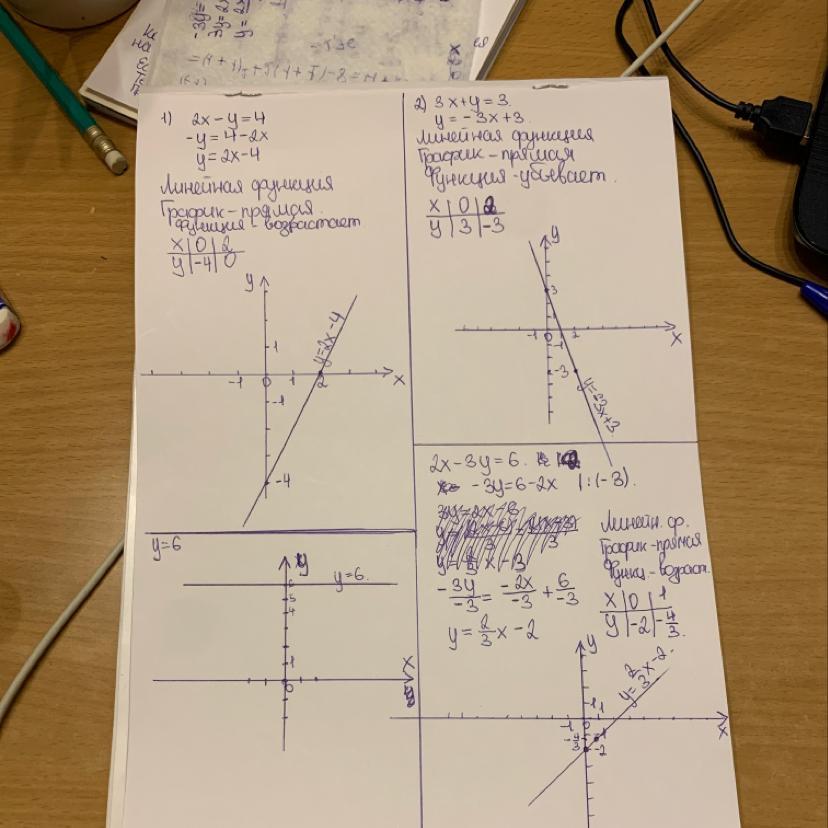 1) 2x-y=4
-y=4-2x
y=2x-4
Линейная функция
График-прямая.
Функция-возрастает
x|0|2
y|-4|0
y
1
-1 0 1 2 x
-1
-4
y=2x-4
2) 3x+y=3.
y=-3x+3.
Линейная функция
График-прямая
Функция-убывает.
x|0|2
y|3|-3
y
3
1
-1 0 1 2 x
-3
y=-3x+3
y=6
y
6
5
4
1
0
x
y=6.
2x-3y=6.
-3y=6-2x |:(-3).
3y=2x-6
-3y/-3 = -2x/-3 + 6/-3
y=2/3x-2
Линейн. ф.
График-прямая
Функц.-возраст.
x|0|1
y|-2|-4/3.
y
1
-1 0 1
x
-4/3
-2
y=2/3x-2.
-3y=
3y=2x
y=2x